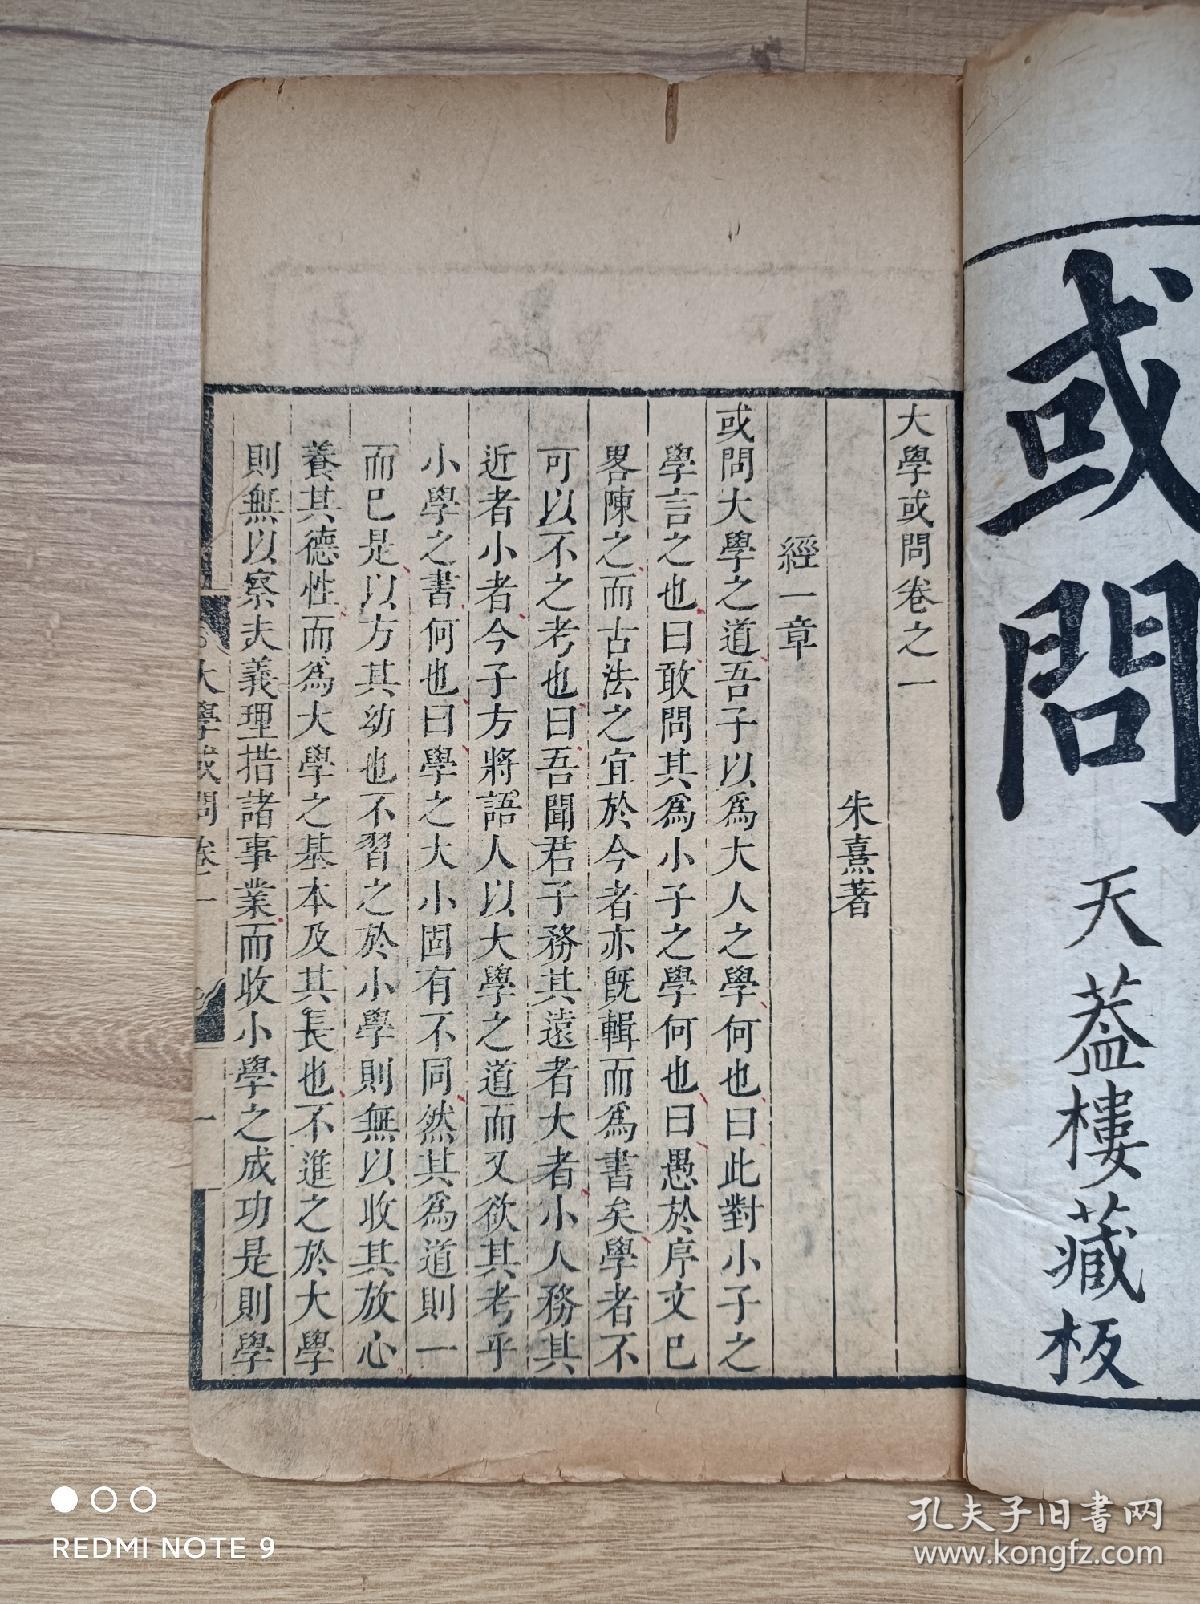 或問
天蓋樓藏板
大學或問卷之一
朱熹著
經一章
或問大學之道吾子以為大人之學何也曰此對小子之
學言之也曰敢問其為小子之學何也曰愚於序文已
畧陳之而古法之宜於今者亦旣輯而為書矣學者不
可以不之考也曰吾聞君子務其遠者大者小人務其
近者小者今子方將語人以大學之道而又欲其考乎
小學之書何也曰學之大小固有不同然其為道則一
而已是以方其幼也不習之於小學則無以收其放心
養其德性而為大學之基本及其長也不進之於大學
則無以察夫義理措諸事業而收小學之成功是則學
大學或問卷一
一
REDMI NOTE 9
孔夫子旧书网
www.kongfz.com